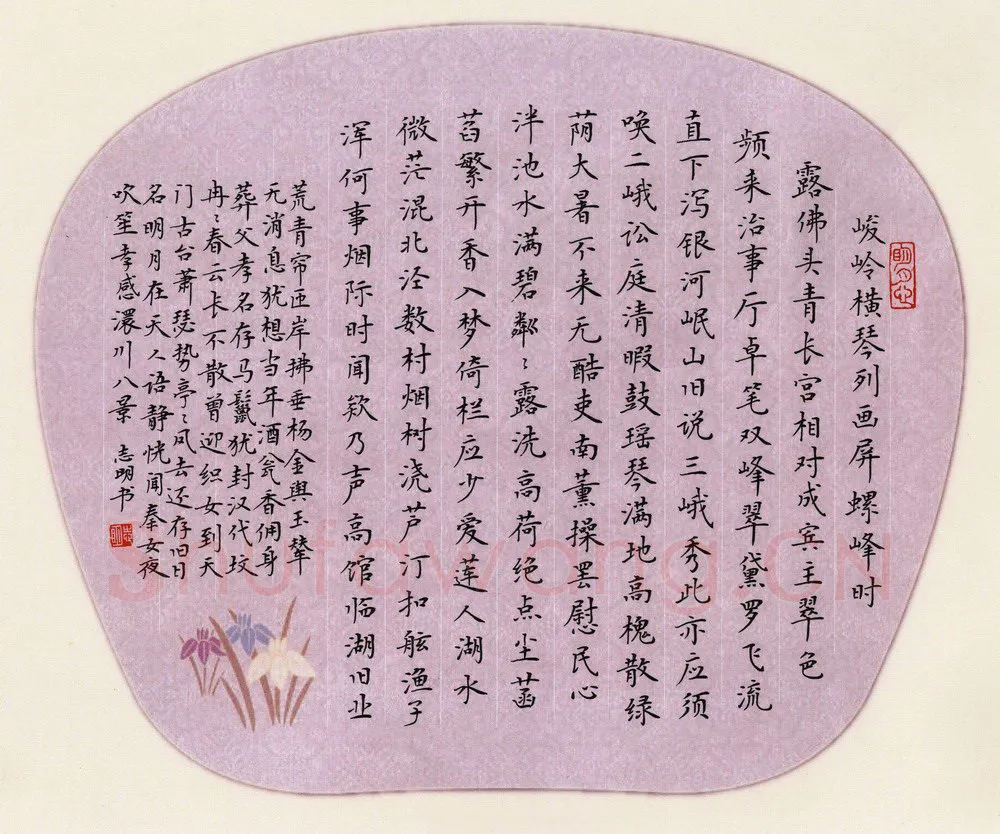 峻岭横琴列画屏螺峰时
露佛头青长宫相对成宾主翠色
频来治事厅卓笔双峰翠黛罗飞流
直下泻银河岷山旧说三峨秀此亦应须
唤二峨讼庭清暇鼓瑶琴满地高槐散绿
荫大暑不来无酷吏南薰操罢慰民心
泮池水满碧粼〻露洗高荷绝点尘菡
萏繁开香入梦倚栏应少爱莲人湖水
微茫混北泾数村烟树浇芦汀扣舷渔子
浑何事烟际时闻欸乃声高馆临湖旧业
荒青帘匝岸拂垂杨金舆玉辇
无消息犹想当年酒瓮香佣身
葬父孝名存马鬣犹封汉代坟
冉〻春云长不散曾迎织女到天
门古台萧瑟势亭〻凤去还存旧日
名明月在天人语静恍闻秦女夜
吹笙孝感澴川八景 志明书
shufawang.cn